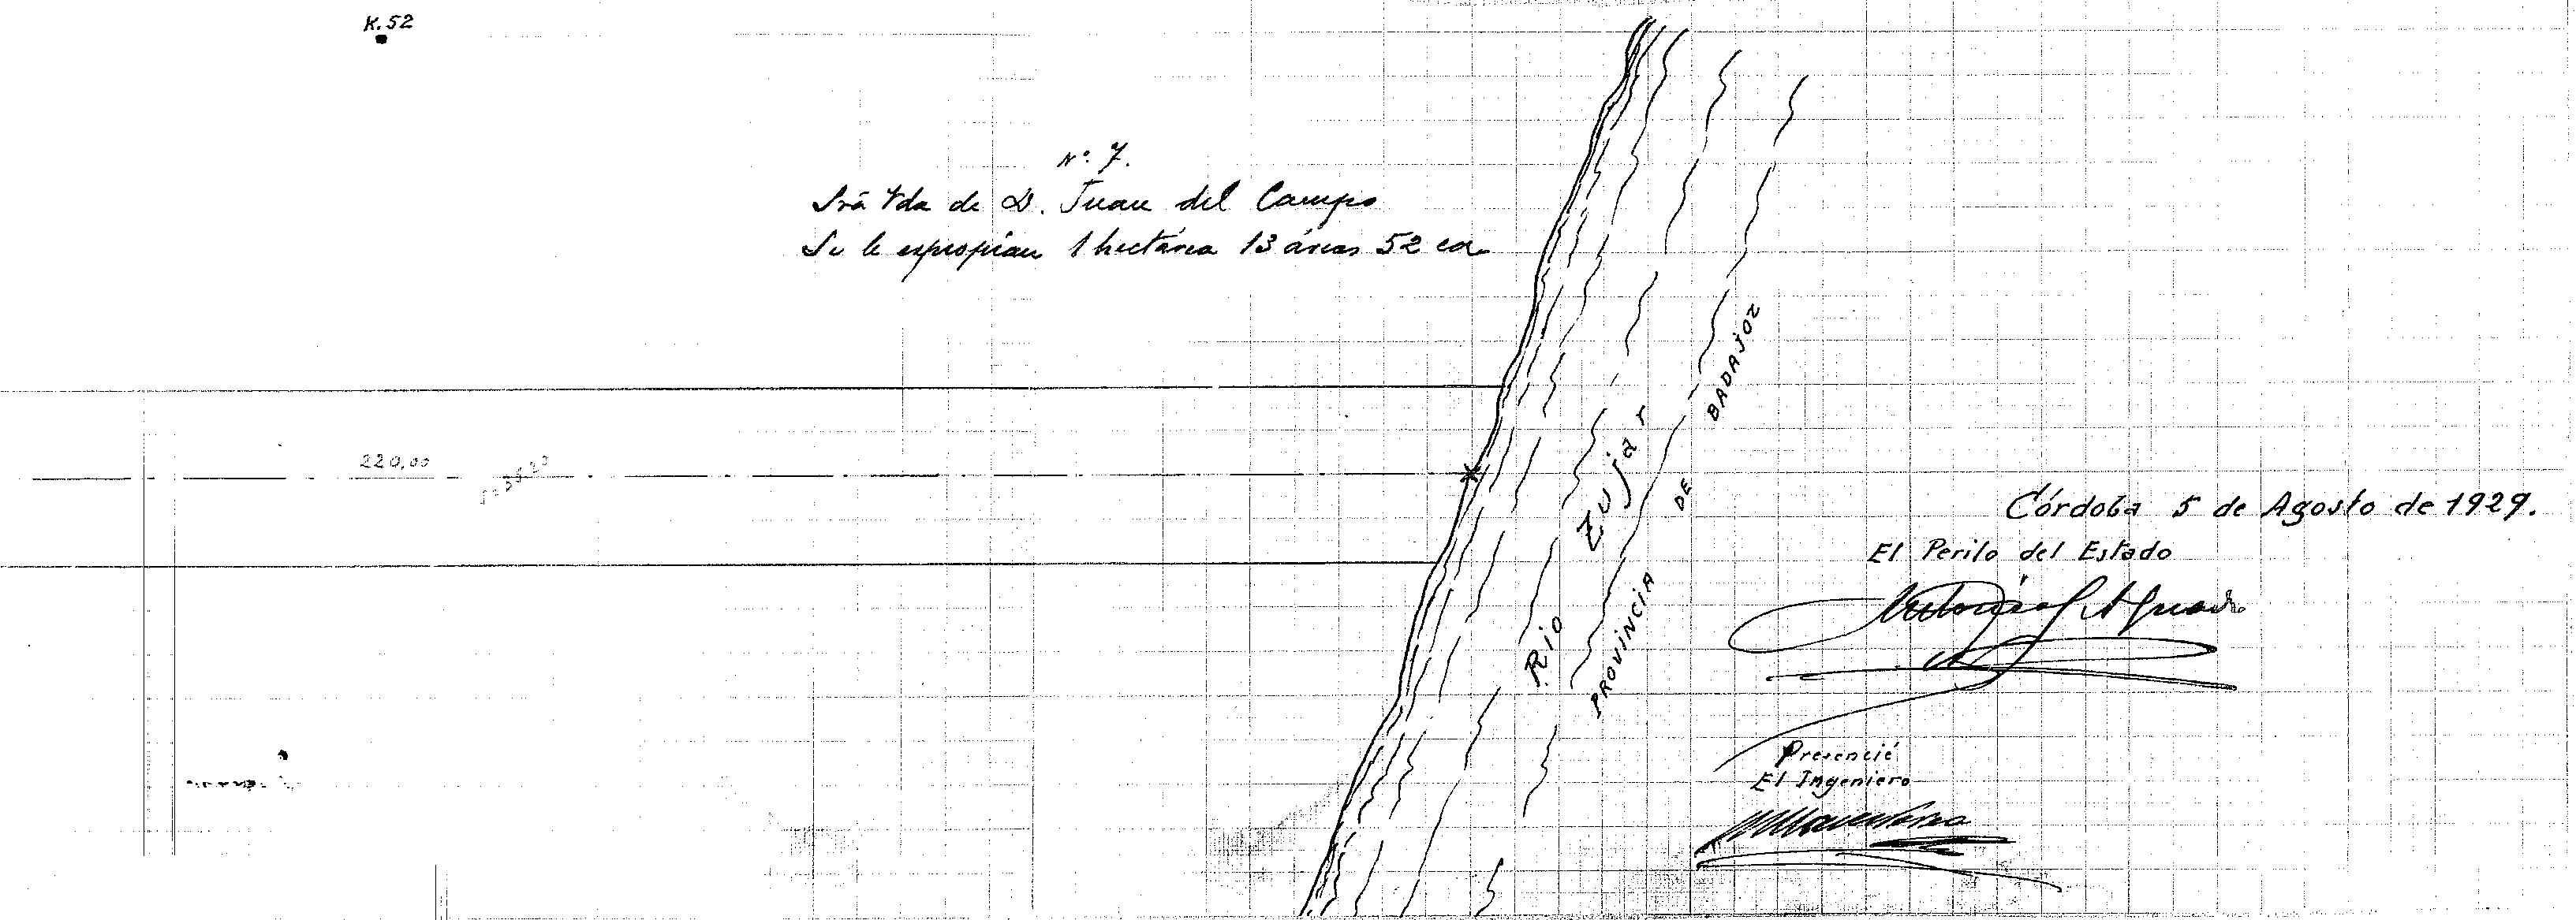 K.52
Nº 7.
Srã Vda de D. Juan del Campo
Se le expropian 1 hectárea 13 áreas 52 ca
220,00
Rio Zujar
PROVINCIA DE BADAJOZ
Córdoba 5 de Agosto de 1929.
El Perito del Estado
Presencié
El Ingeniero